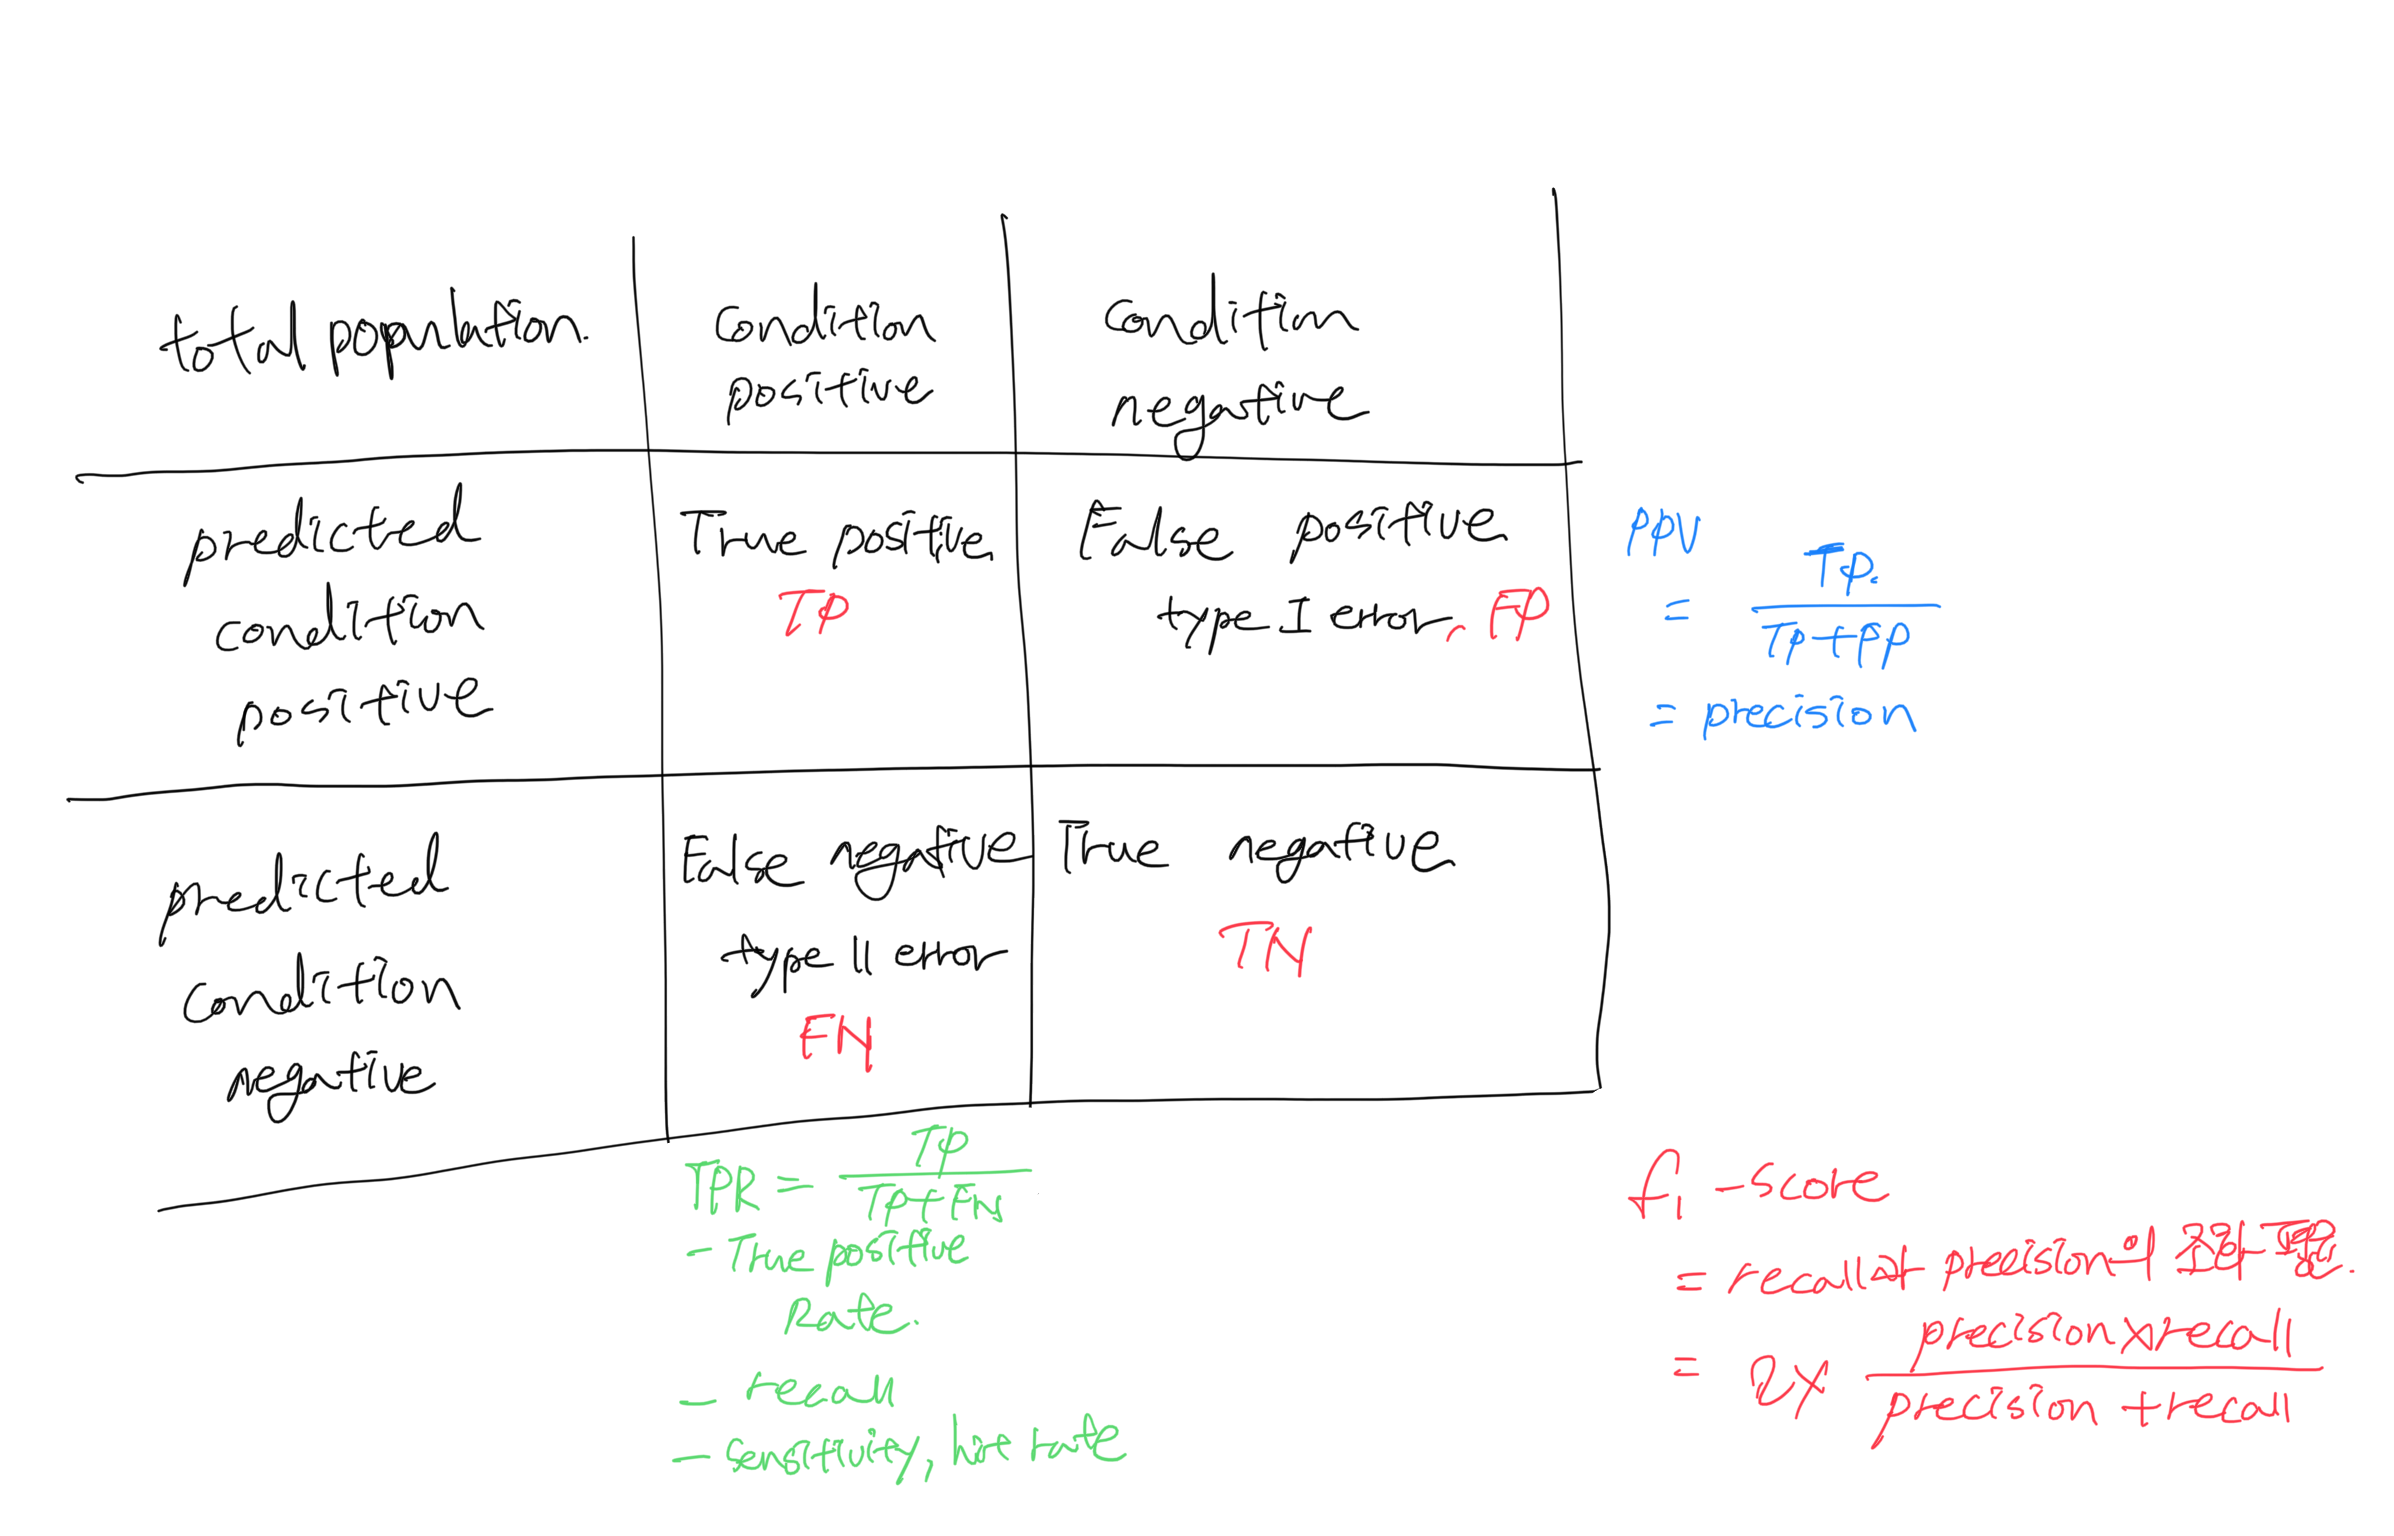 total population.
Condition
positive
Condition
negative
predicted
condition
positive
True positive
TP
False positive
type I error. FP
PPV
= TP
TP+FP
= precision
predicted
Condition
negative
False negative
type II error
FN
True negative
TN
TPR = TP
TP+FN
- True positive
Rate.
- recall
- sensitivity, hit rate
f1 - score
= recall과 precision의 조화평균.
= 2× precision × recall
precision + recall